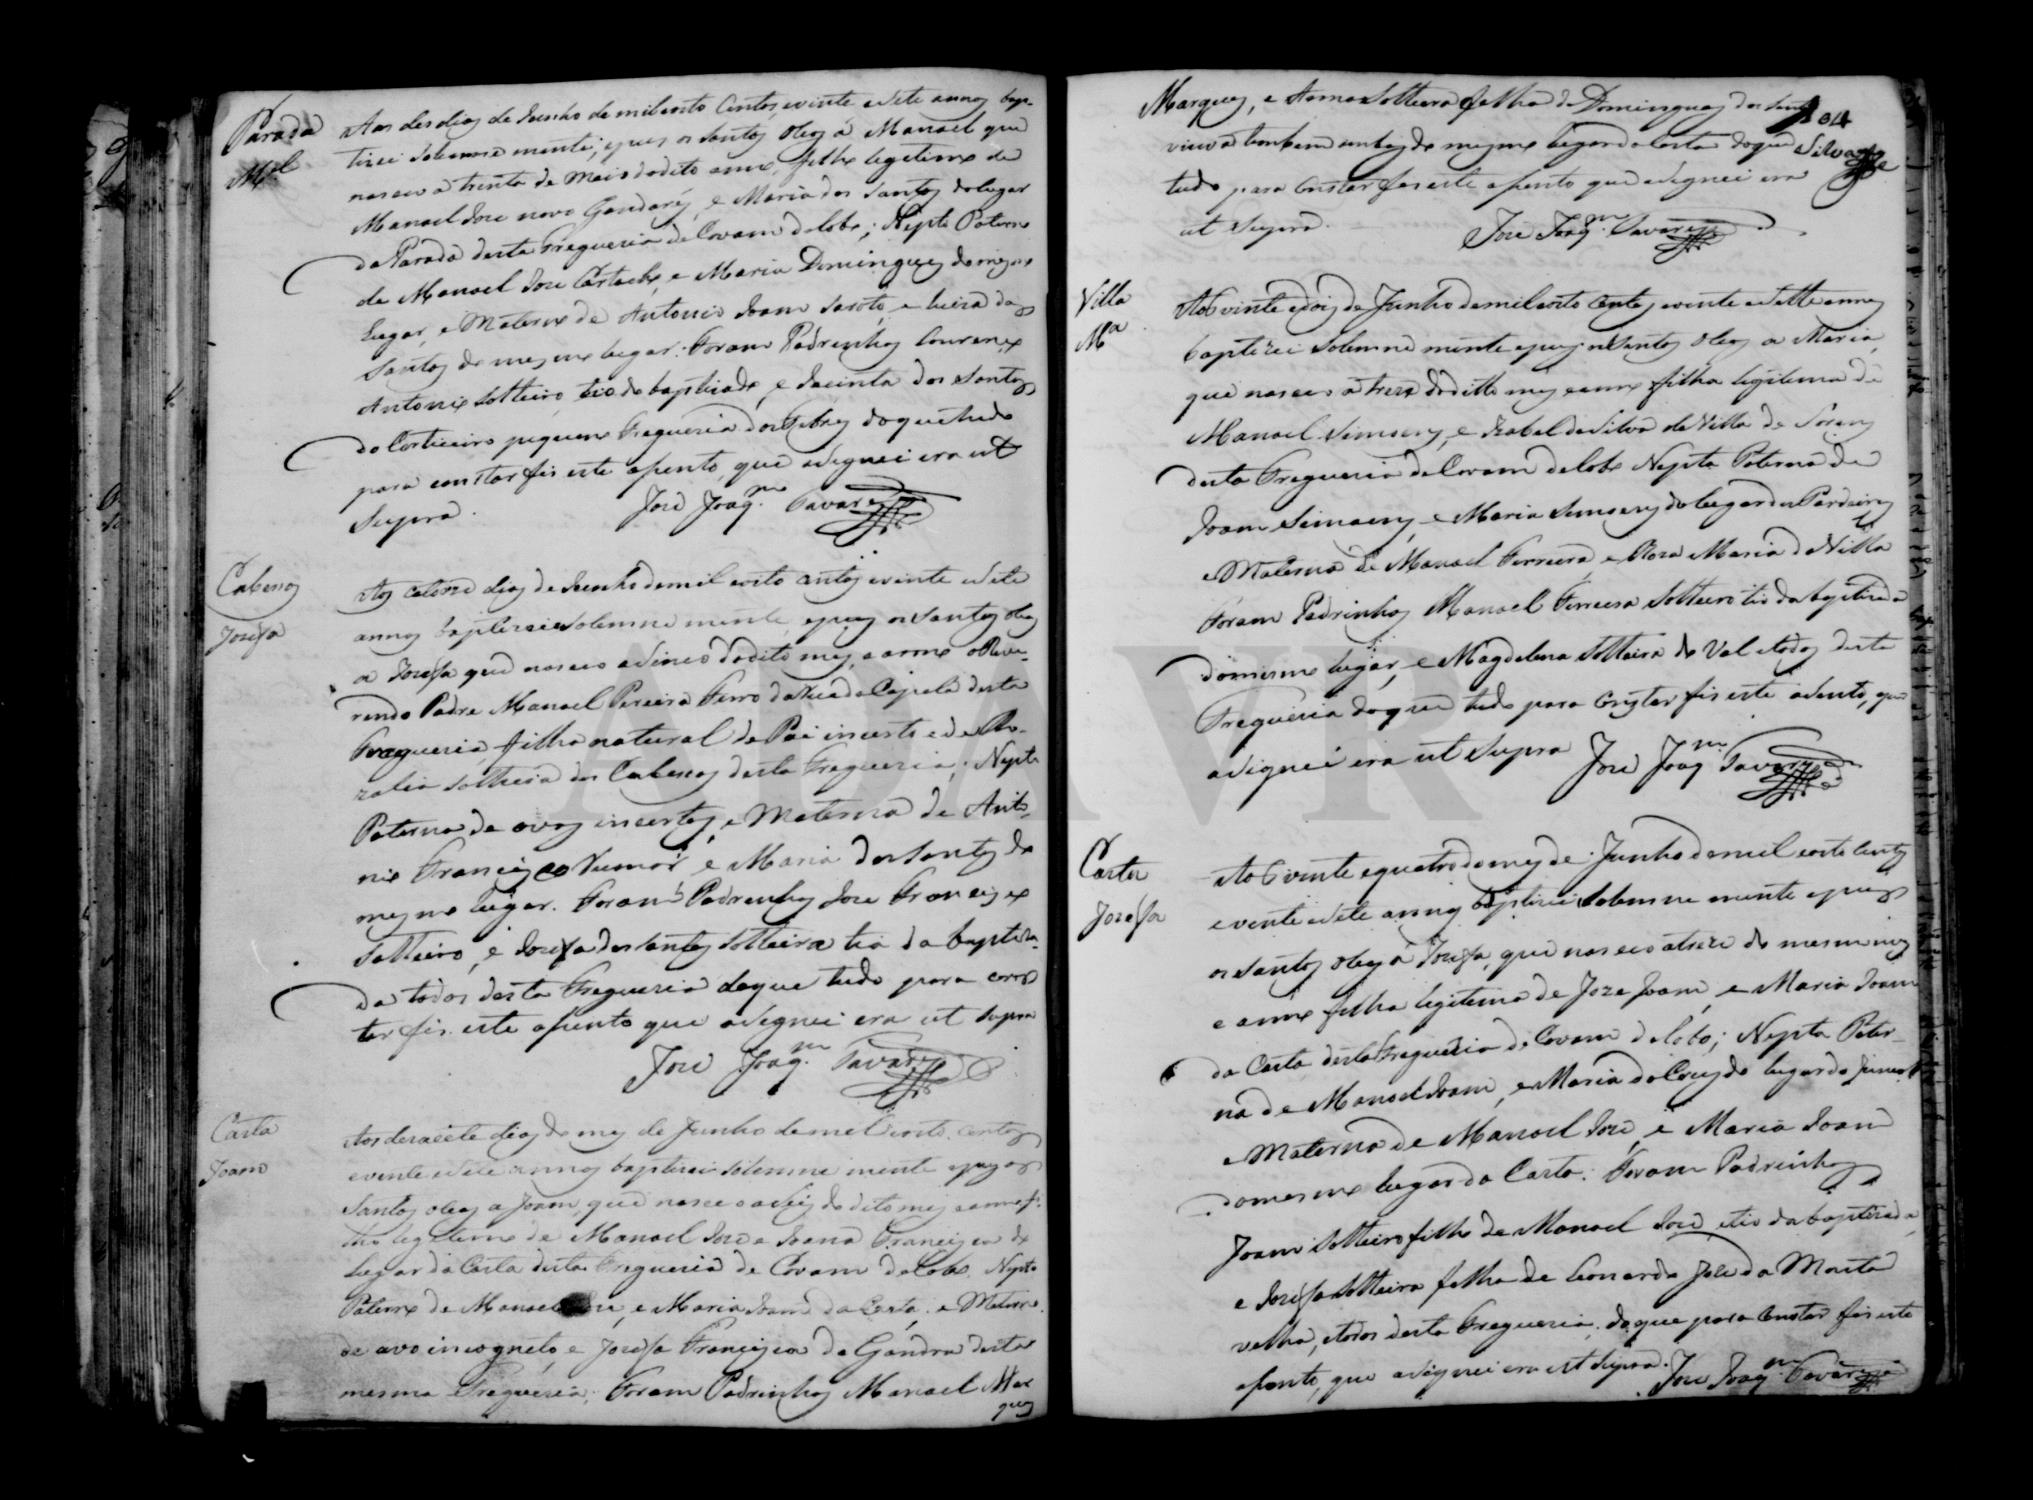 Parada
M.el
Aos des dias de Junho de mil oito centos, e vinte e sete annos bap-
tizei solemne mente, e pus os santos oleos a Manoel que
nasceo a trinta de Maio do dito anno, filho legitimo de
Manoel Joze novo Gandarês, e Maria dos Santos do lugar
da Parada desta Freguesia de Covam do lobo; Nepto Paterno
de Manoel Joze e Maria Domingues do mesmo
lugar, e Materno de Antonio Joam e Luiza dos
Santos do mesmo lugar. Foram Padrinhos Lourenço
Antonio solteiro, tio do baptizado, e Jacinta dos Santos
do Corticeiro pequeno Freguesia dos Febres do que tudo
para constar fis este asento, que asignei era ut
supra.
Joze Joaq.m Tavares
Cabesos
Josefa
Aos catorze dias de Junho de mil oito centos e vinte e sete
annos baptizei solemne mente, e pus os santos oleos
a Josefa que nasceo a sinco do dito mes, e anno o Reve-
rendo Padre Manoel Pereira Ferro da Capela desta
Freguesia, filha natural de Pai incerto e de Ro-
zalia solteira dos Cabesos desta Freguesia; Nepta
Paterna de avos incertos, e Materna de Anto-
nio Francisco e Maria dos Santos do
mesmo lugar. Foram Padrinhos Joze Francisco
solteiro, e Josefa dos Santos solteira tia da baptiza-
da todos desta Freguesia do que tudo para cons
tar fis este asento que asignei era ut supra
Joze Joaq.m Tavares
Carta
Joam
Aos desasete dias do mes de Junho de mil oito centos
e vinte e sete annos baptizei solemne mente e pus os
santos oleos a Joam, que nasceo a seis do dito mes e anno fi-
lho legitimo de Manoel Joze e Joana Francisca do
lugar da Carta desta Freguesia de Covam do Lobo, Nepto
Paterno de Manoel Joze, e Maria Joam da Carta, e Materno
de avo incognito, e Josefa Francisca da Gandra desta
mesma Freguesia. Foram Padrinhos Manoel Mar
ques
104
Marques, e solteira filha de Domingues dos
viuva do mesmo lugar da Carta do que
tudo para constar fis este asento que asignei era
ut supra.
Joze Joaq.m Tavares
Silva
Villa
M.a
Aos vinte e dois de Junho de mil oito centos, e vinte e sette annos
baptizei solemne mente e pus os santos oleos a Maria,
que nasceo a treze do ditto mes e anno filha legitima de
Manoel Simoens, e Izabel da Silva da Villa de
desta Freguesia de Covam do lobo Nepta Paterna de
Joam Simoens, e Maria Simoens do lugar dos Pardeiros
e Materna de Manoel Ferreira e Roza Maria da Villa
Foram Padrinhos Manoel Ferreira solteiro tio da baptizada
do mesmo lugar, e Magdalena solteira do Val e todos desta
Freguesia do que tudo para constar fis este asento, que
asignei era ut supra Joze Joaq.m Tavares
Carta
Josefa
Aos vinte e quatro do mes de Junho de mil oito centos
e vinte e sete annos baptizei solemne mente e pus
os santos oleos a Josefa, que nasceo a treze do mesmo mes
e anno filha legitima de Joze Joam, e Maria Joam
da Carta desta Freguesia de Covam do lobo; Nepta Pater-
na de Manoel Joam, e Maria da Cruz do lugar da
e Materna de Manoel Joze, e Maria Joam
do mesmo lugar da Carta. Foram Padrinhos
Joam solteiro filho de Manoel Joze, e tio da baptizada,
e Josefa solteira filha de Leonardo Joze da Mouta
velha, e todos desta Freguesia, do que para constar fis este
asento, que asignei era ut supra. Joze Joaq.m Tavares
ADAVR